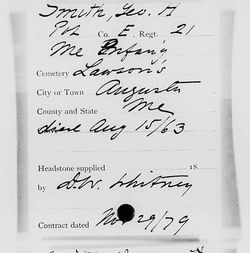 Smith, Geo. H
Pvt Co. E. Regt. 21
Me Infan'y
Cemetery Lawson's
City or Town Augusta
County and State Me
died Aug 15/63
Headstone supplied 18
by D.W. Whitney
Contract dated Nov 29/79